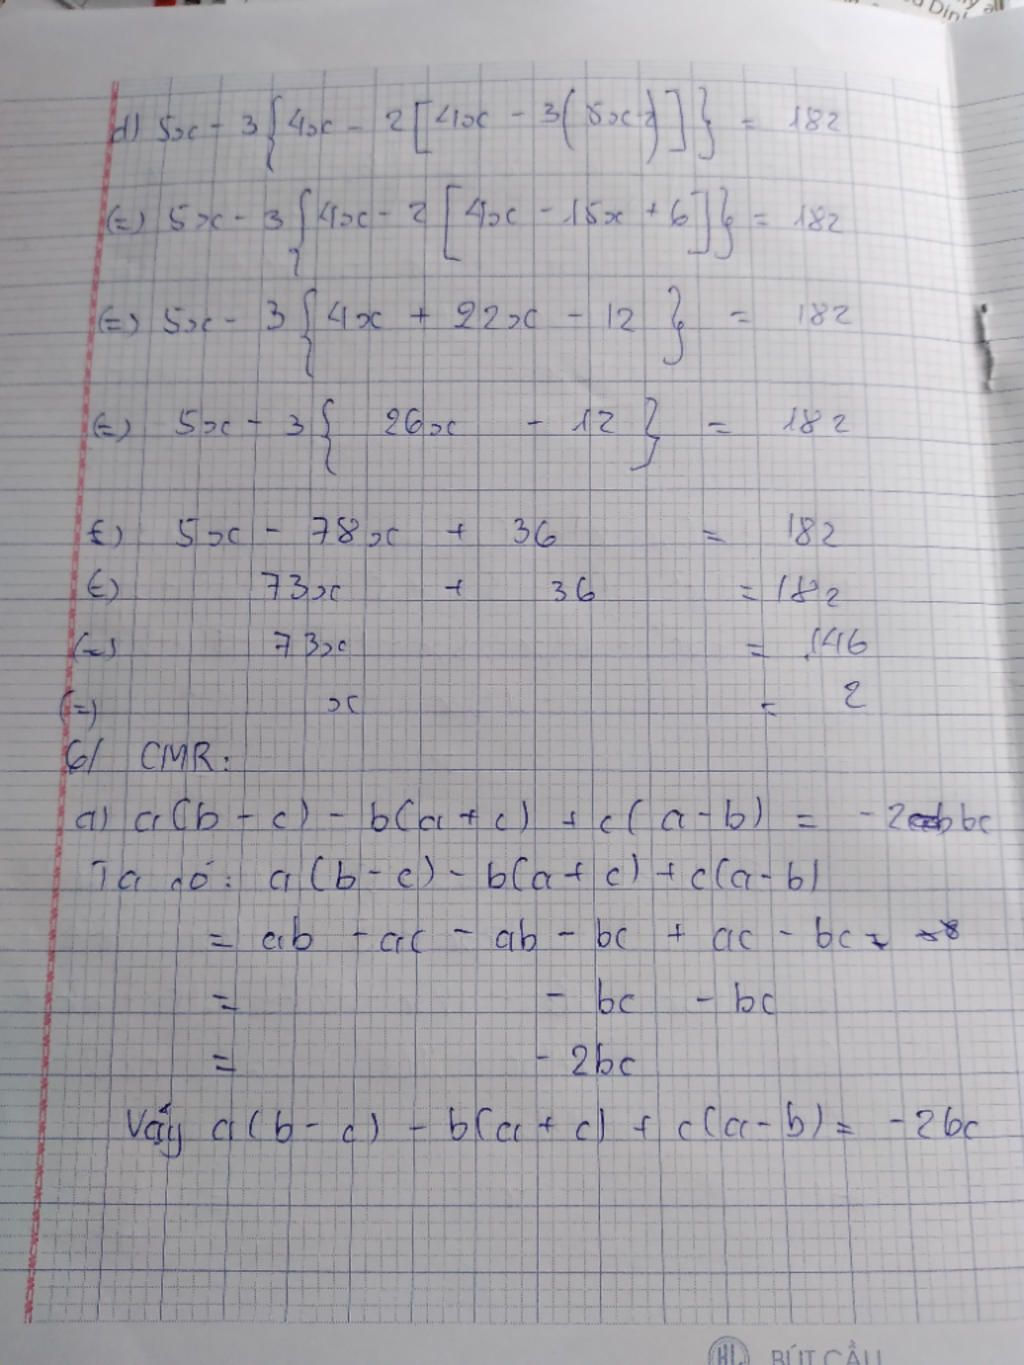 d) 5x - 3{4x - 2[4x - 3(5x-2)]} = 182
(=) 5x - 3{4x - 2[4x - 15x + 6]} = 182
(=) 5x - 3{4x + 22x - 12} = 182
(=) 5x - 3{26x - 12} = 182
(=) 5x - 78x + 36 = 182
(=) 73x + 36 = 182
(=) 73x = 146
(=) x = 2
6/ CMR:
a) a(b-c) - b(a+c) + c(a-b) = -2bc
Ta có: a(b-c) - b(a+c) + c(a-b)
= ab - ac - ab - bc + ac - bc
= - bc - bc
= - 2bc
Vậy a(b-c) - b(a+c) + c(a-b) = -2bc
BÚT CẦU